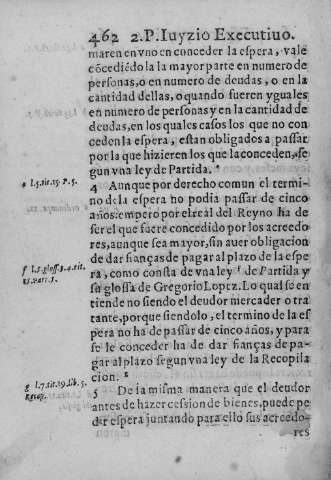 462 2.P. Iuyzio Executiuo.
maren en vno en conceder la espera, vale
cõcediẽdo la la mayor parte en numero de
personas, o en numero de deudas, o en la
cantidad dellas, o quando fueren yguales
en numero de personas y en la cantidad de
deudas, en los quales casos los que no con
ceden la espera, estan obligados a passar
por la que hizieren los que la conceden, se
gun vna ley de Partida. e
e l.5.tit.15.P.5.
4 Aunque por derecho comun el termi-
no de la espera no podia passar de cinco
años: empero por el real del Reyno ha de
ser el que fuere concedido por los acreedo
res, aunque sea mayor, sin auer obligacion
de dar fianças de pagar al plazo de la espe
f l.5.gloss.3.4.tit.
15.Part.5.
ra, como consta de vna ley f de Partida y
su glossa de Gregorio Lopez. Lo qual se en
tiende no siendo el deudor mercader o tra
tante, porque siendolo, el termino de la es
pera no ha de passar de cinco años, y para
se le conceder ha de dar fianças de pa-
gar al plazo segun vna ley de la Recopila
cion. g
g l.7.tit.19.lib.5.
Recop.
5 De la misma manera que el deudor
antes de hazer cession de bienes, puede pe
dir espera juntando para ello sus acreedo-
res